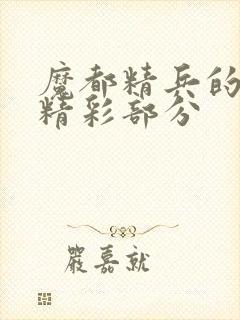 魔都精兵的
精彩部分
嚴嘉就